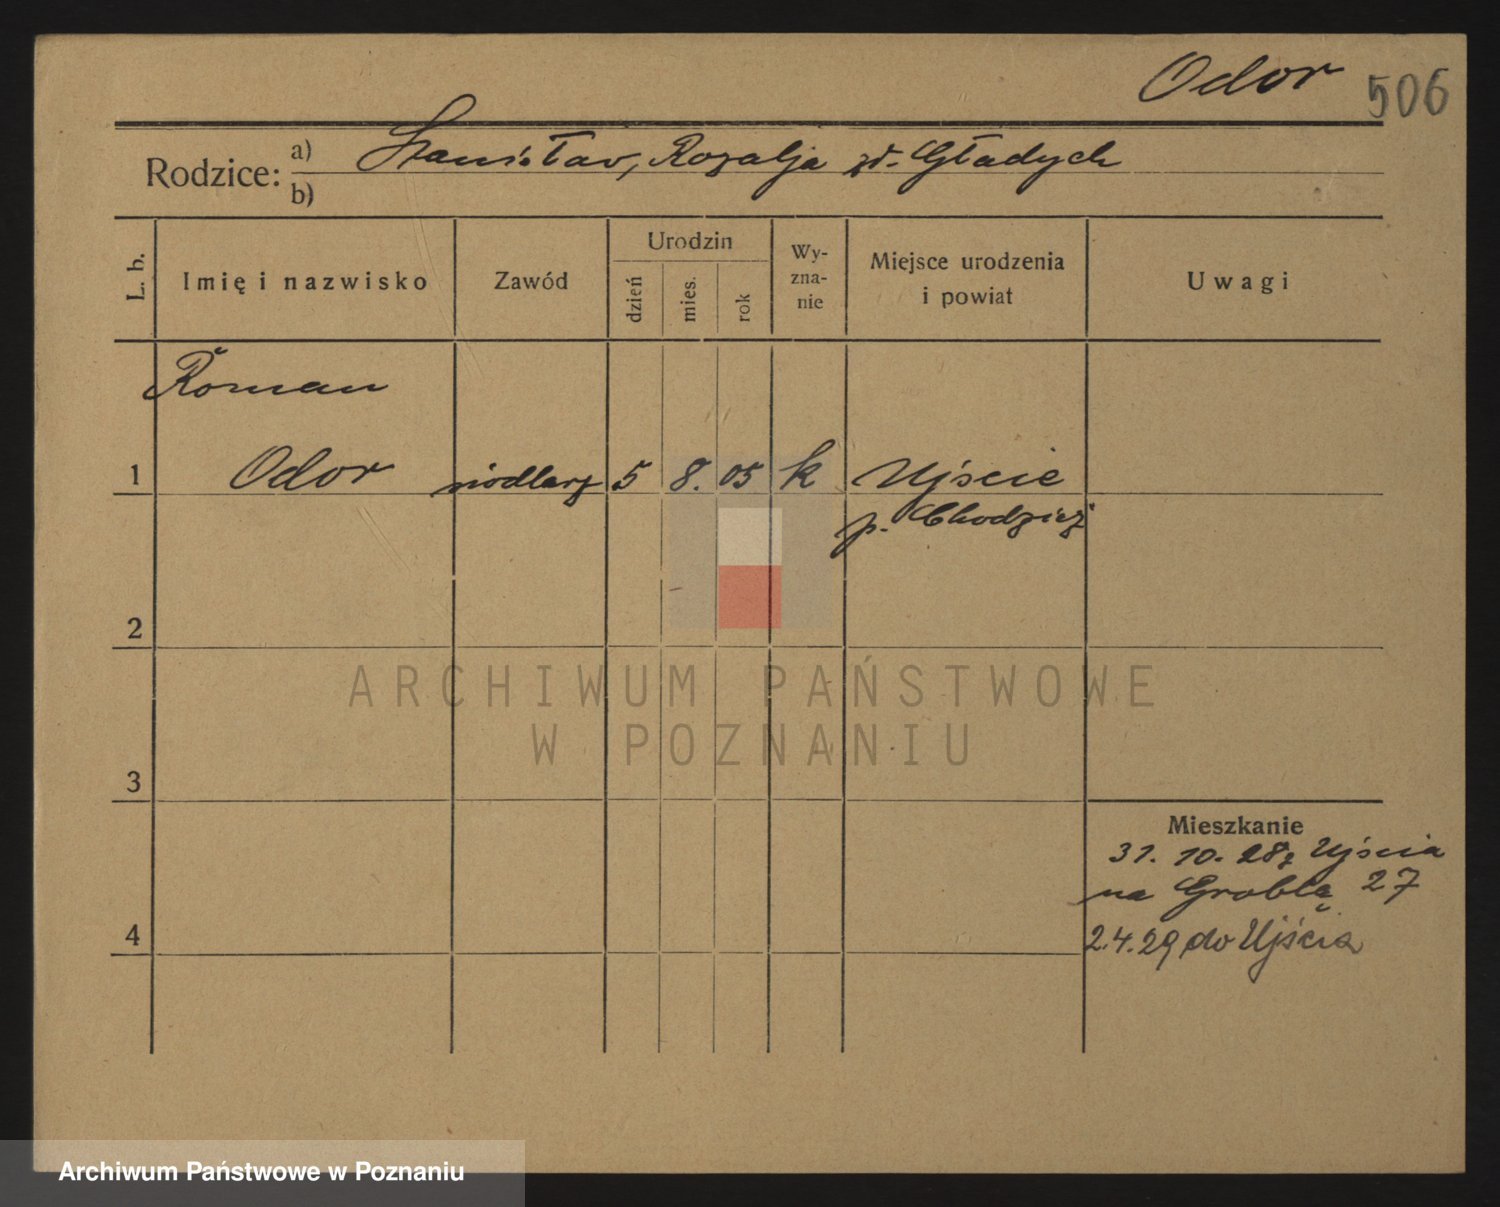 Odor 506
Rodzice: a) Stanisław, Rozalja zd. Gładych
b)
L. b. Imię i nazwisko Zawód Urodzin dzień mies. rok Wy-zna-nie Miejsce urodzenia i powiat Uwagi
Roman
1 Odor siodlarz 5 8. 05 k Ujście
p. Chodzież
2
ARCHIWUM PAŃSTWOWE
W POZNANIU
3
Mieszkanie
31. 10. 28 z Ujścia
na Groblę 27
4 2.4.29 do Ujścia
Archiwum Państwowe w Poznaniu